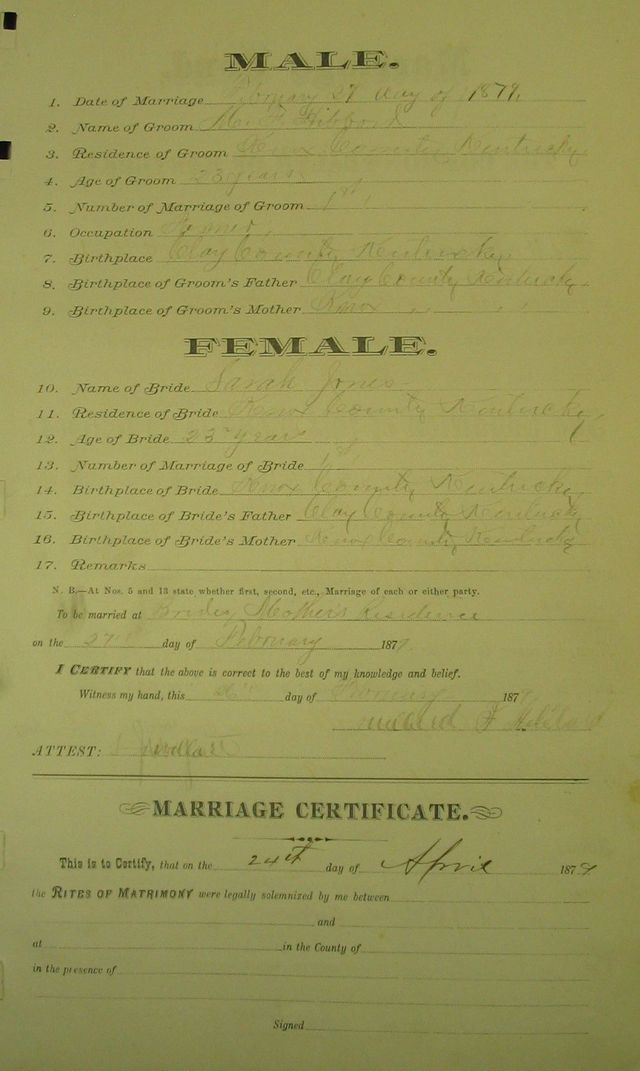 MALE.
1. Date of Marriage February 27 day of 1879.
2. Name of Groom M. F. Hibbard
3. Residence of Groom Knox County Kentucky
4. Age of Groom 23 years
5. Number of Marriage of Groom 1st
6. Occupation Farmer
7. Birthplace Clay County Kentucky
8. Birthplace of Groom's Father Clay County Kentucky
9. Birthplace of Groom's Mother Knox " "
FEMALE.
10. Name of Bride Sarah Jones
11. Residence of Bride Knox County Kentucky
12. Age of Bride 23 years
13. Number of Marriage of Bride 1st
14. Birthplace of Bride Knox County Kentucky
15. Birthplace of Bride's Father Clay County Kentucky
16. Birthplace of Bride's Mother Knox County Kentucky
17. Remarks
N. B.—At Nos. 5 and 13 state whether first, second, etc., Marriage of each or either party.
To be married at Brides Mother's Residence
on the 27th day of February 1879
I CERTIFY that the above is correct to the best of my knowledge and belief.
Witness my hand, this 26th day of February 187
Millard F Hibbard
ATTEST:
MARRIAGE CERTIFICATE.
This is to Certify, that on the 24th day of April 1879
the RITES OF MATRIMONY were legally solemnized by me between
and
at in the County of
in the presence of
Signed